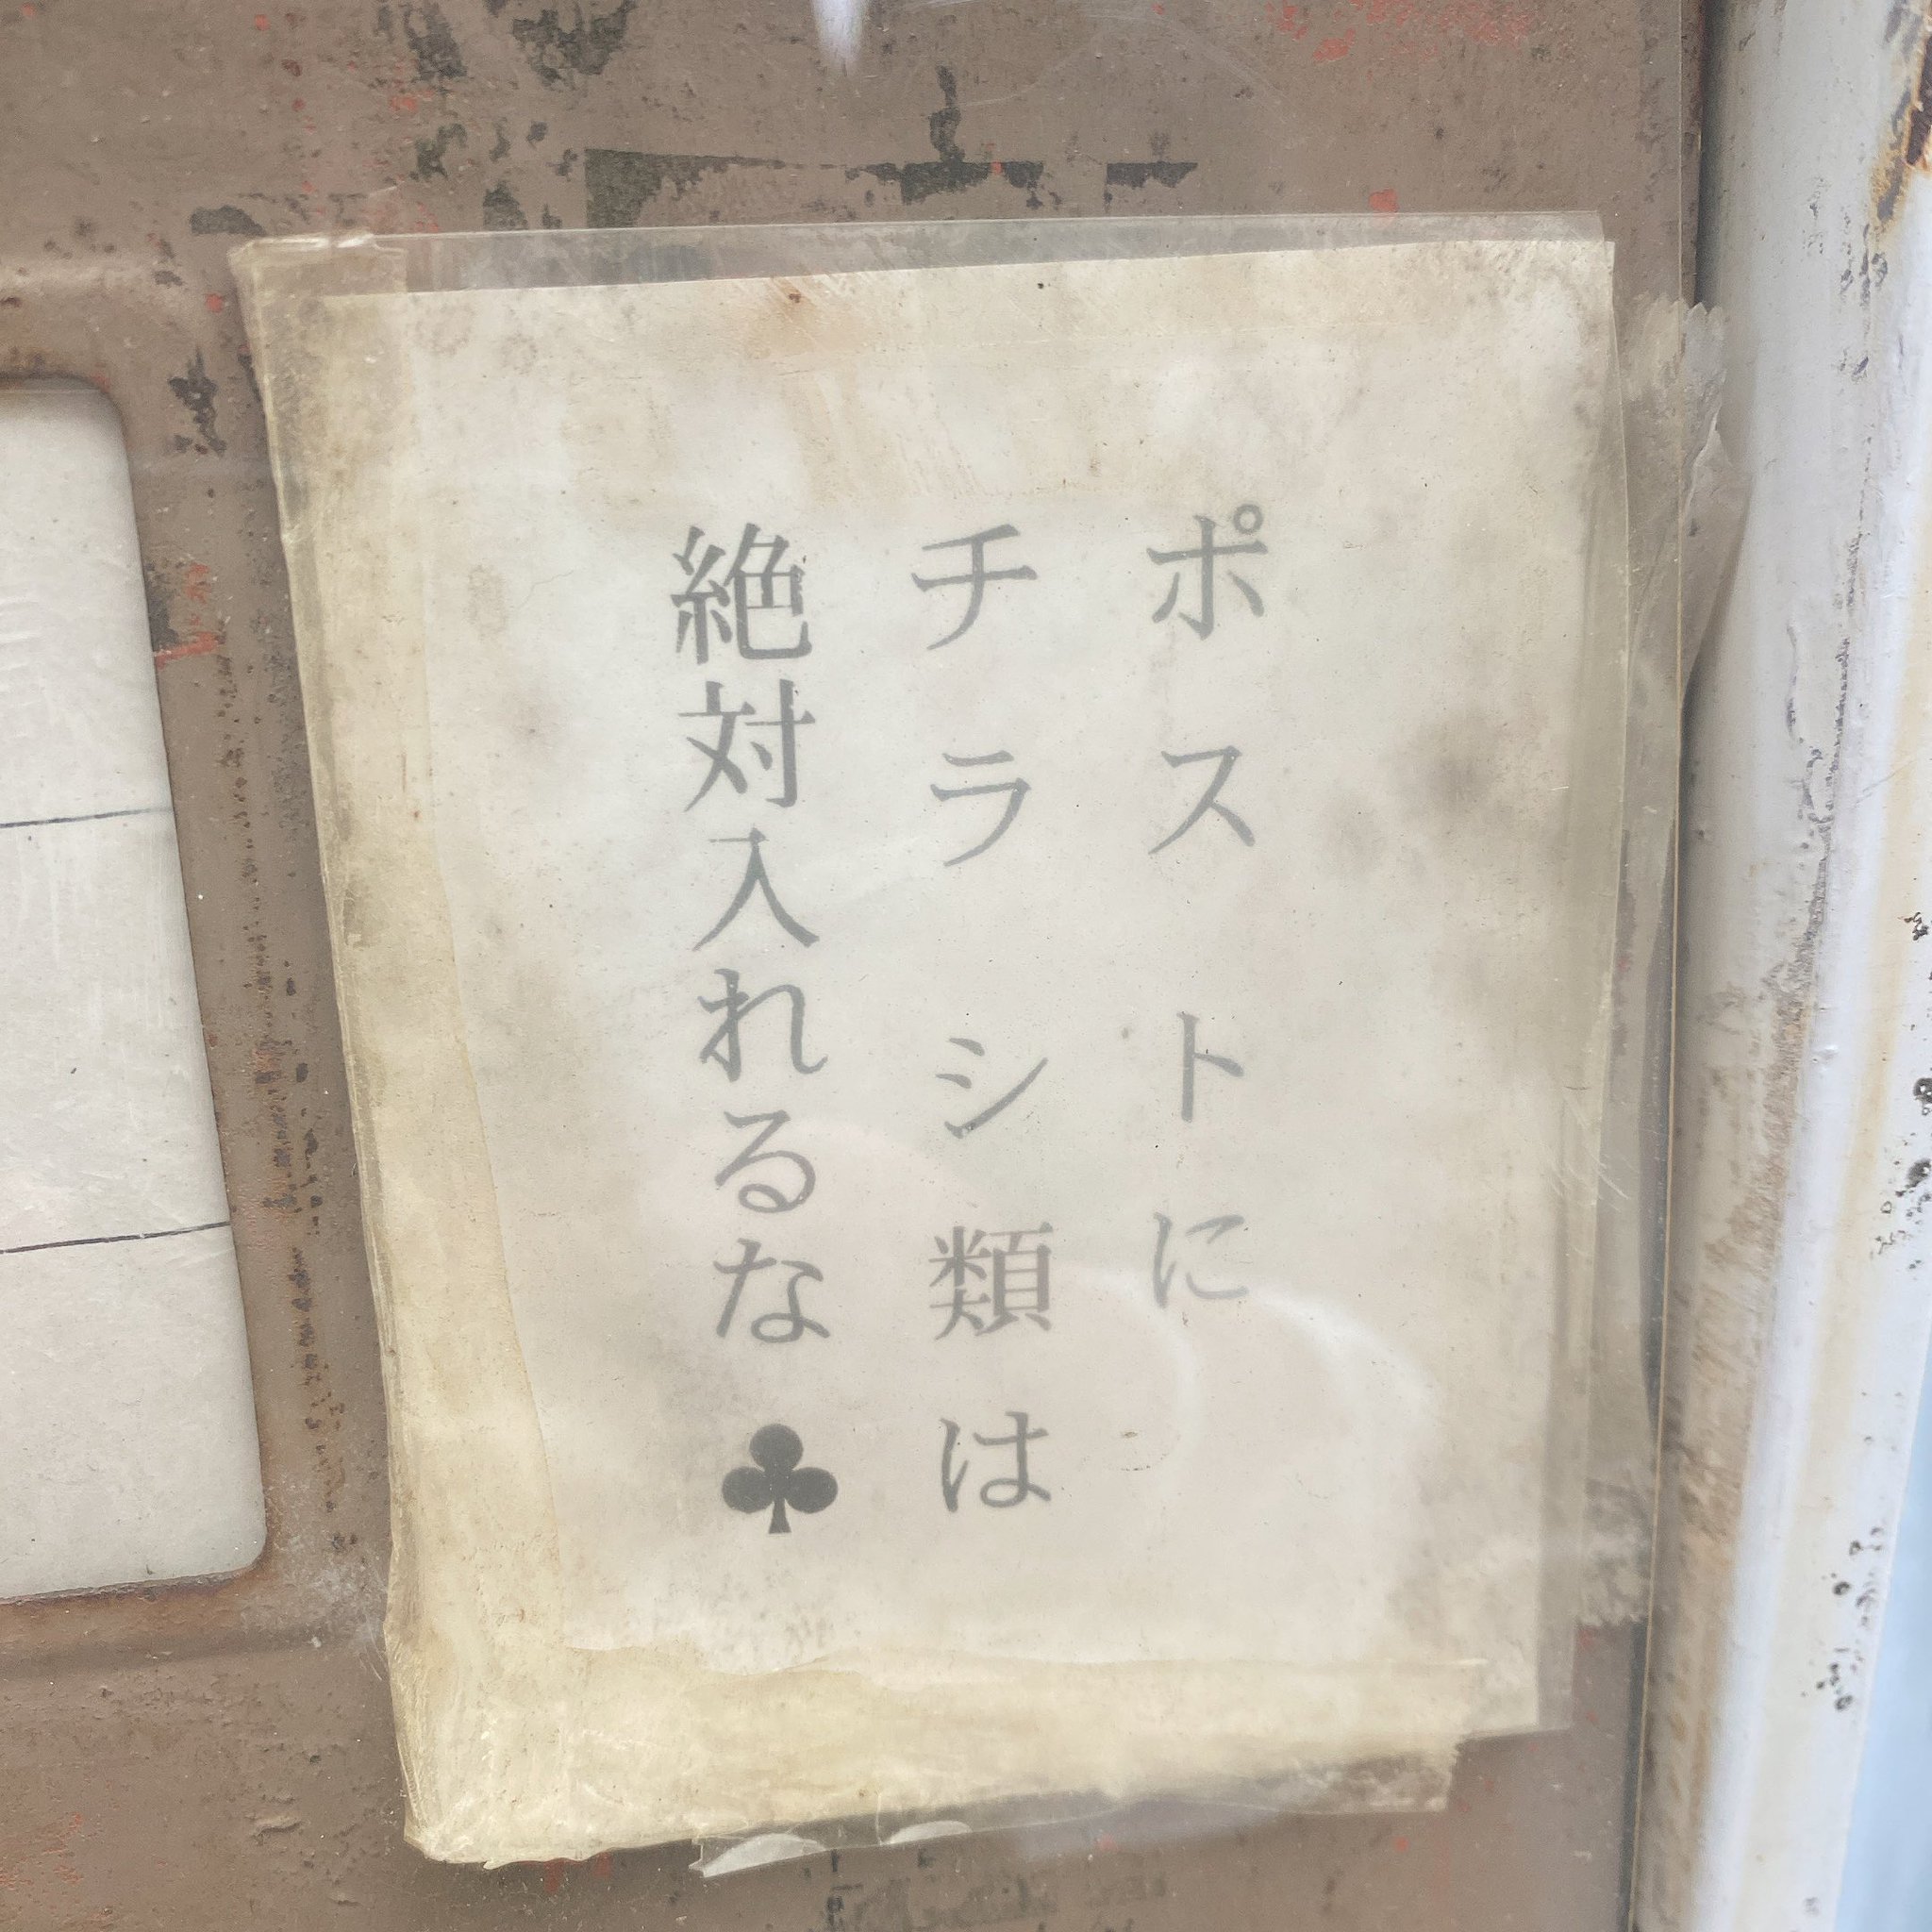 ポストに
チラシ類は
絶対入れるな♣